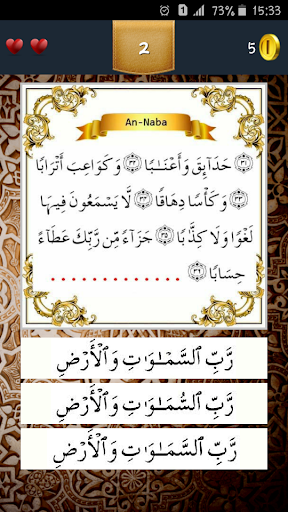 15:33
2
5
An-Naba
﴿٣١﴾ حَدَآئِقَ وَأَعْنَـٰبًا ﴿٣٢﴾ وَكَوَاعِبَ أَتْرَابًا
﴿٣٣﴾ وَكَأْسًا دِهَاقًا ﴿٣٤﴾ لَّا يَسْمَعُونَ فِيهَا
لَغْوًا وَلَا كِذَّٰبًا ﴿٣٥﴾ جَزَآءً مِّن رَّبِّكَ عَطَآءً
حِسَابًا ﴿٣٦﴾ .............
رَّبِّ ٱلسَّمْـٰوَٰتِ وَٱلْأَرْضِ
رَّبِّ ٱلسُّمَـٰوَٰتِ وَٱلْأَرْضِ
رَّبِّ ٱلسَّمَـٰوَٰتِ وَٱلْأَرْضِ